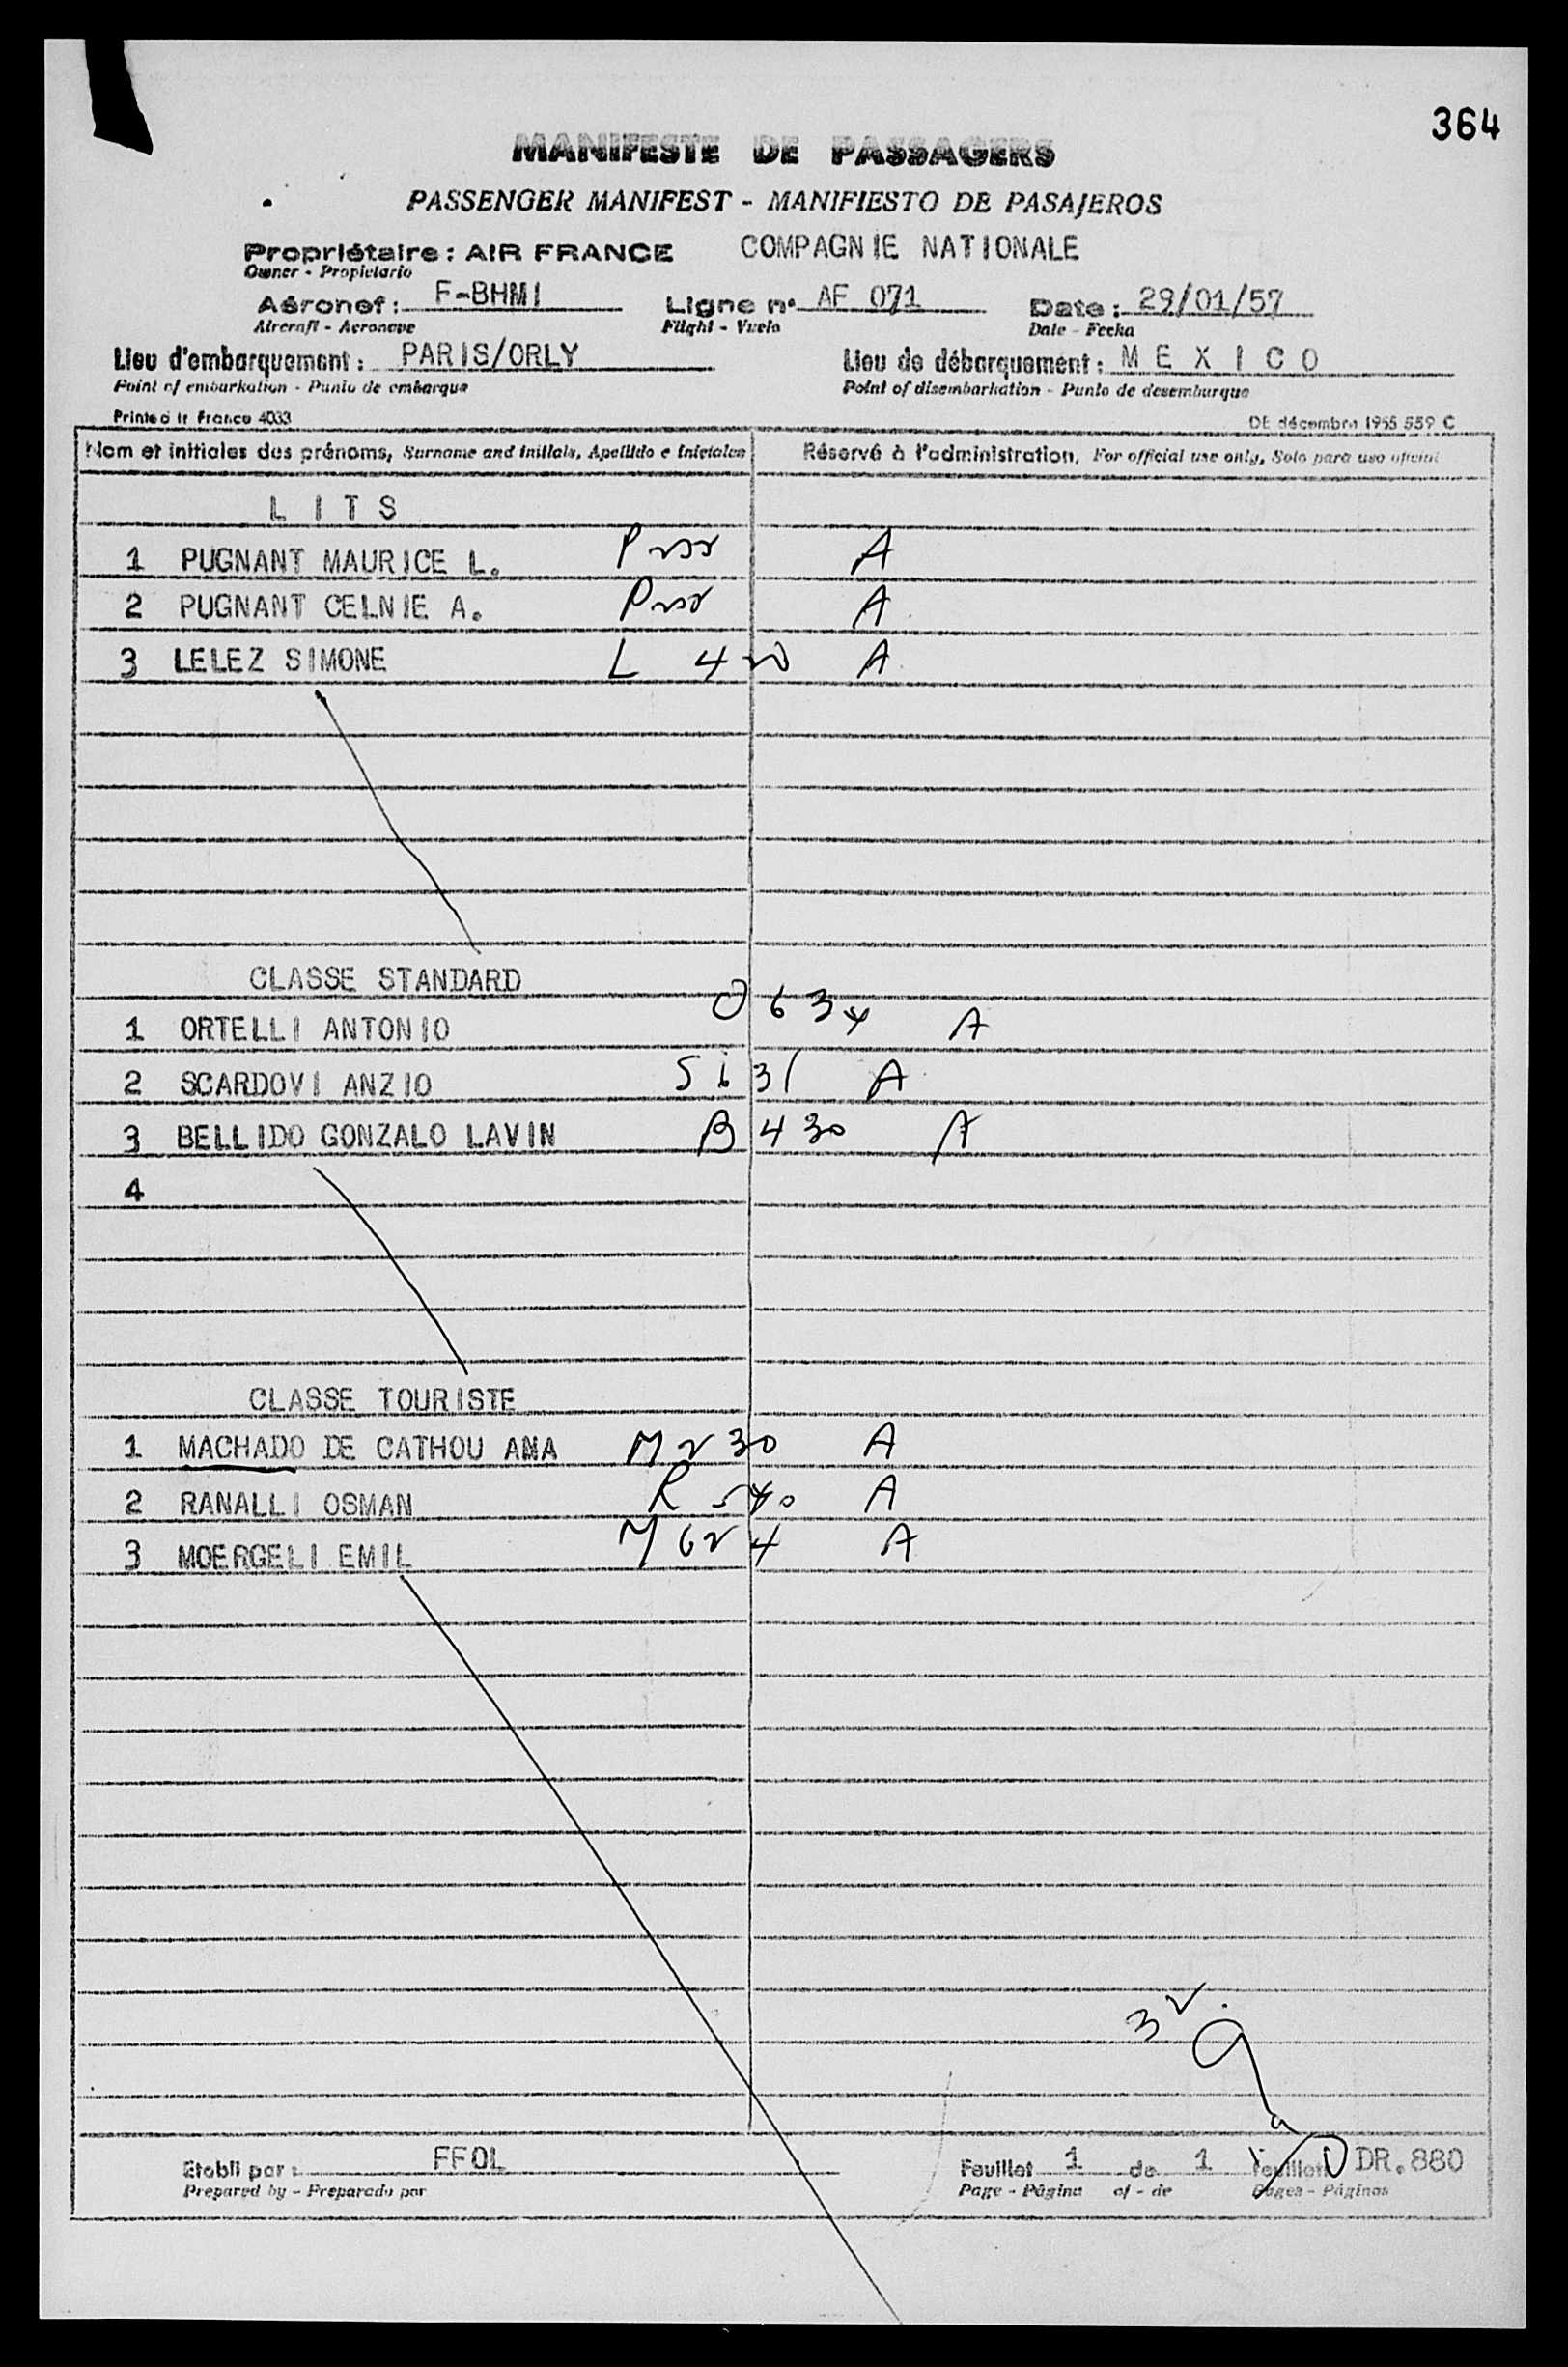 364
MANIFESTE DE PASSAGERS
PASSENGER MANIFEST - MANIFIESTO DE PASAJEROS
Propriétaire : AIR FRANCE COMPAGNIE NATIONALE
Owner - Propietario
Aéronef : F-BHMI Ligne n° AF 071 Date : 29/01/57
Aircraft - Aeronave Flight - Vuelo Date - Fecha
Lieu d'embarquement : PARIS/ORLY Lieu de débarquement : M E X I C O
Point of embarkation - Punto de embarque Point of disembarkation - Punto de desembarque
Printed in France 4033 DE décembre 1955 559 C
Nom et initiales des prénoms, Surname and initials, Apellido e iniciales Réservé à l'administration, For official use only, Solo para uso oficial
L I T S
1 PUGNANT MAURICE L. A
2 PUGNANT CELNIE A. A
3 LELEZ SIMONE L 420 A
CLASSE STANDARD
1 ORTELLI ANTONIO O 634 A
2 SCARDOVI ANZIO S 631 A
3 BELLIDO GONZALO LAVIN B 430 A
4
CLASSE TOURISTE
1 MACHADO DE CATHOU ANA M 230 A
2 RANALLI OSMAN R 540 A
3 MOERGELI EMIL M 624 A
Etabli par : FFOL Feuillet 1 de 1 feuillets DR.880
Prepared by - Preparado por Page - Página of - de Pages - Páginas